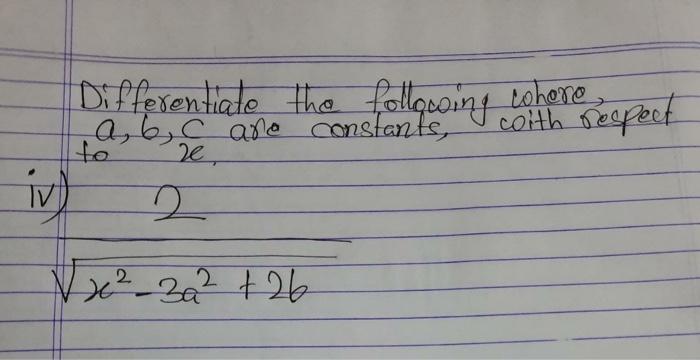 Differentiate the following where,
a, b, c are constants, with respect
to x.
iv) 2
√x² - 3a² + 2b